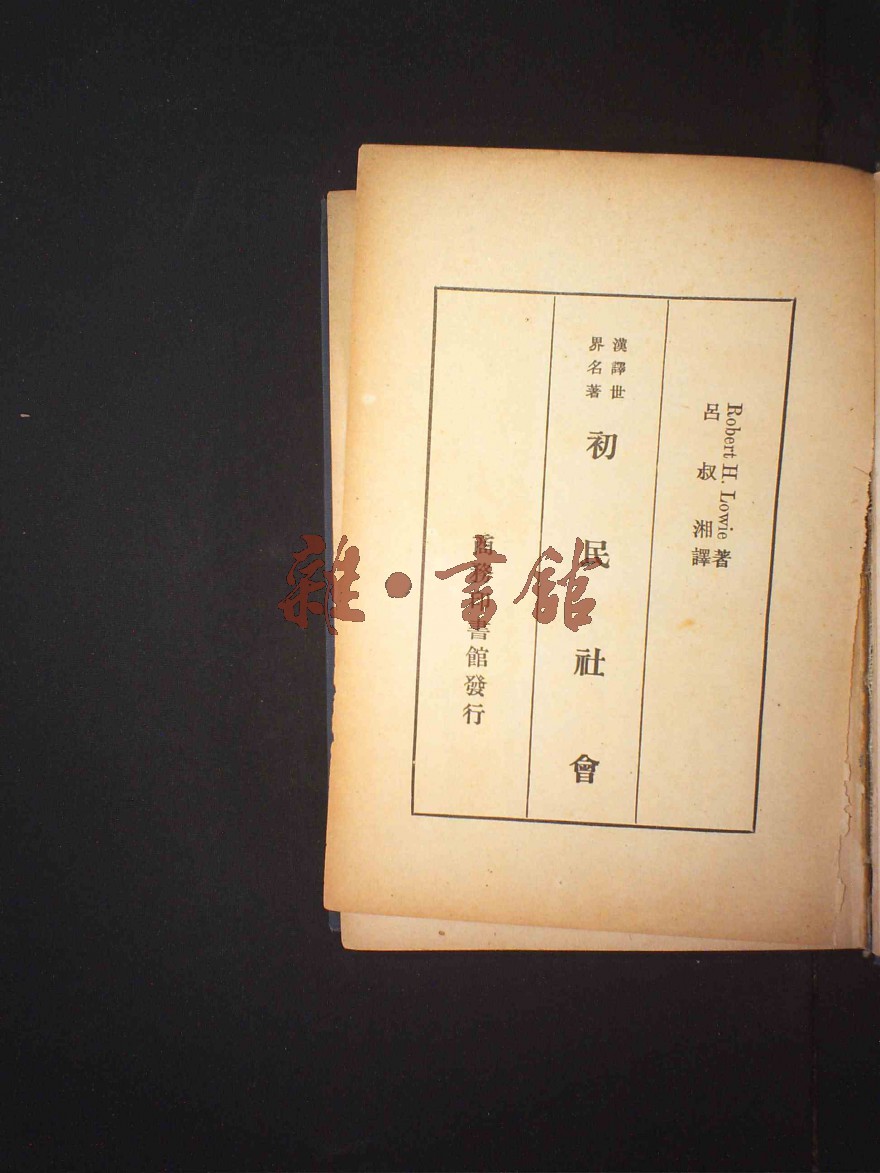 Robert H. Lowie 著
呂叔湘譯
漢譯世
界名著
初民社會
商務印書館發行
雜·書館